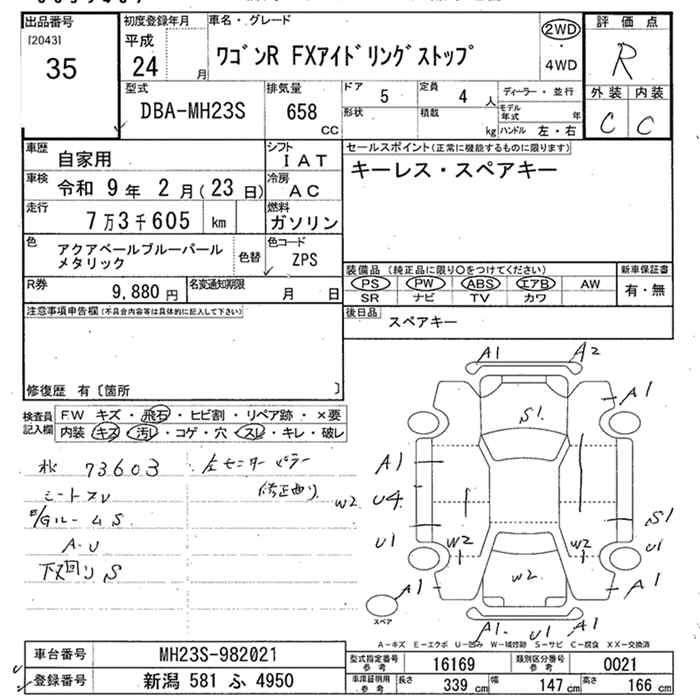 出品番号
[2043]
35
初度登録年月
平成
24 月
車名・グレード
ワゴンR FXアイドリングストップ
2WD
・
4WD
評価点
R
外装 内装
C C
型式
DBA-MH23S
排気量
658 CC
ドア 5
定員 4 人
形状
積載 kg
ディーラー・並行
モデル年式 年
ハンドル 左・右
車歴 自家用
シフト IAT
車検 令和 9年 2月(23日)
冷房 AC
走行 7万3千605 km
燃料 ガソリン
色 アクアベールブルーパール
メタリック
色替
色コード ZPS
R券 9,880 円
名変通知期限 月 日
セールスポイント(正常に機能するものに限ります)
キーレス・スペアキー
装備品 (純正品に限り○をつけてください)
新車保証書
PS PW ABS エアB AW
有・無
SR ナビ TV カワ
後日品 スペアキー
注意事項申告欄(不具合内容等は具体的に記入して下さい)
修復歴 有〔箇所 〕
検査員
記入欄
FW キズ・飛石・ヒビ割・リペア跡・×要
内装 キズ・汚レ・コゲ・穴・スレ・キレ・破レ
73603
左センターピラー
修正曲り
シートスレ
A・U
下廻り S
A1 A2
A1
S1
A1
W2 U4
S1
U1
W2 W2
U1
W2
A1
A1
スペア
A1 U1 A1
A-キズ E-エクボ U-凹み W-補修跡 S-サビ C-腐食 XX-交換済
車台番号 MH23S-982021
登録番号 新潟 581 ふ 4950
型式指定番号
参考
16169
類別区分番号
参考
0021
車庫証明用
参考
長さ 339 cm
幅 147 cm
高さ 166 cm